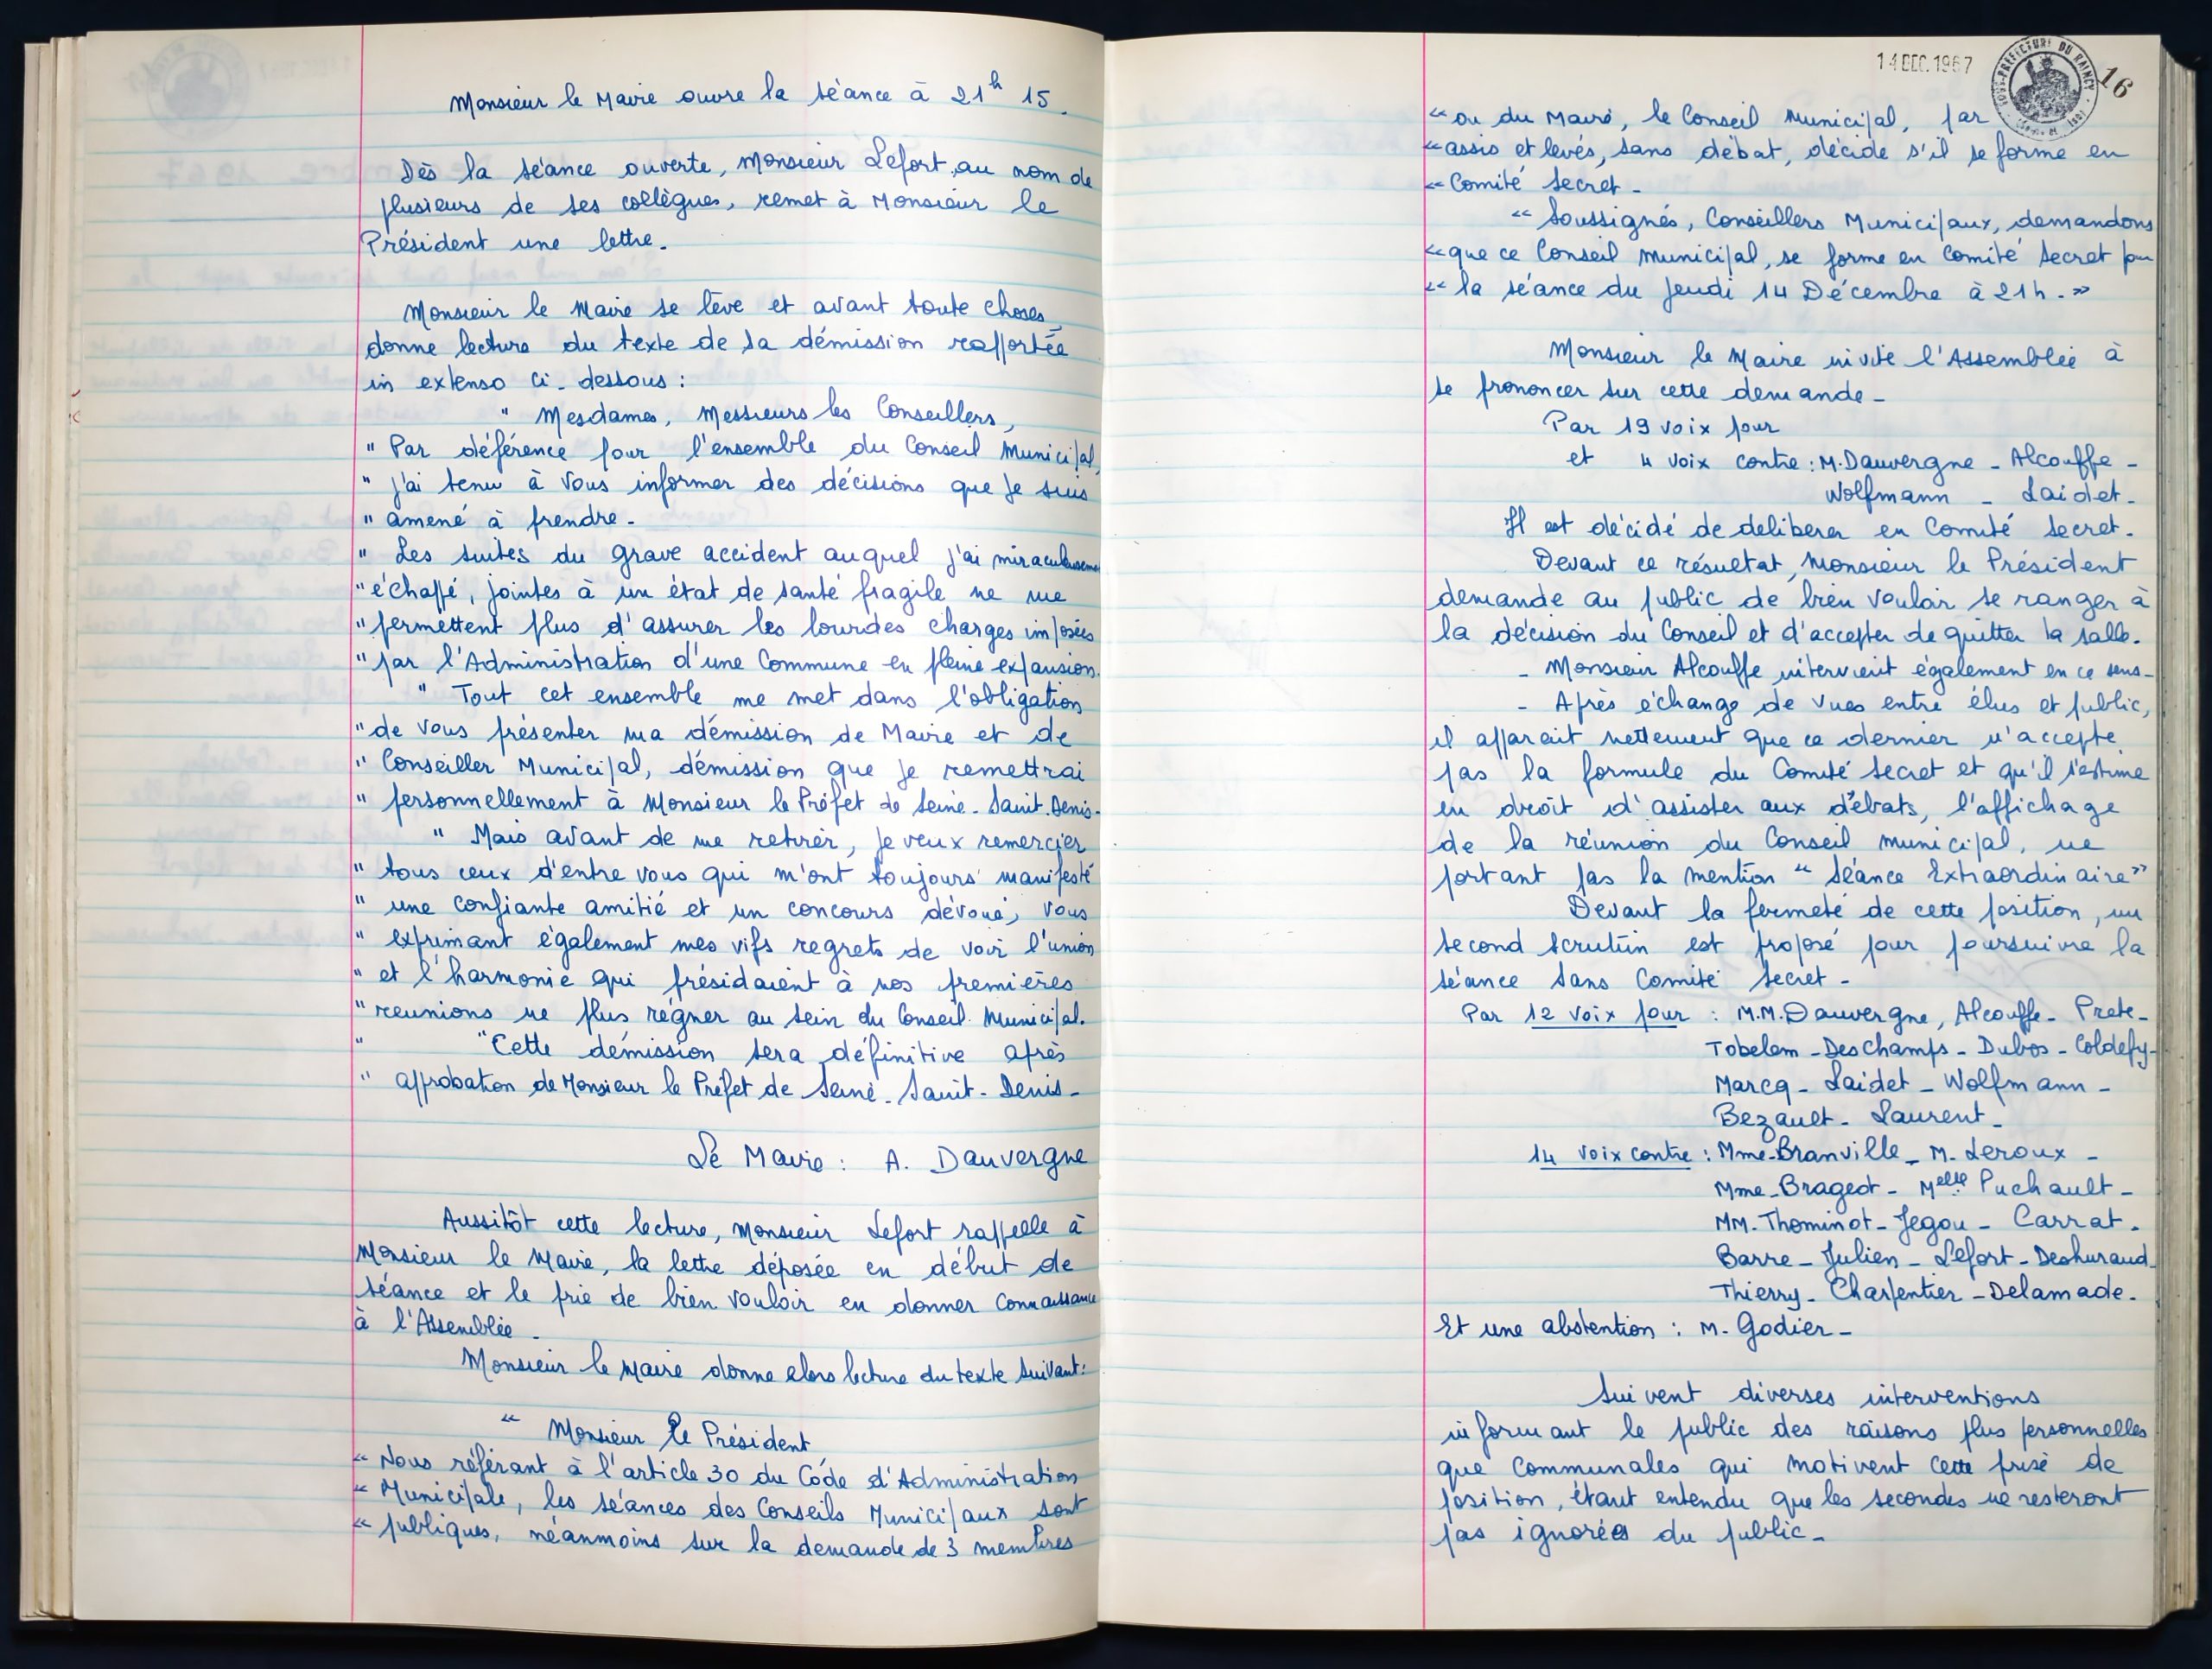 Monsieur le Maire ouvre la séance à 21h 15.
Dès la séance ouverte, Monsieur Lefort, au nom de
plusieurs de ses collègues, remet à Monsieur le
Président une lettre.
Monsieur le Maire se lève et avant toute choses
donne lecture du texte de sa démission rapportée
in extenso ci-dessous :
" Mesdames, Messieurs les Conseillers,
" Par déférence pour l'ensemble du Conseil Municipal,
" j'ai tenu à vous informer des décisions que je suis
" amené à prendre.
" Les suites du grave accident auquel j'ai miraculeusement
" échappé, jointes à un état de santé fragile ne me
" permettent plus d'assurer les lourdes charges imposées
" par l'Administration d'une Commune en pleine expansion.
" Tout cet ensemble me met dans l'obligation
" de vous présenter ma démission de Maire et de
" Conseiller Municipal, démission que je remettrai
" personnellement à Monsieur le Préfet de Seine-Saint-Denis.
" Mais avant de me retirer, je veux remercier
" tous ceux d'entre vous qui m'ont toujours manifesté
" une confiante amitié et un concours dévoué, vous
" exprimant également mes vifs regrets de voir l'union
" et l'harmonie qui présidaient à nos premières
" reunions ne plus régner au sein du Conseil Municipal.
" "Cette démission sera définitive après
" approbation de Monsieur le Préfet de Seine-Saint-Denis-
Le Maire : A. Dauvergne
Aussitôt cette lecture, Monsieur Lefort rappelle à
Monsieur le Maire, la lettre déposée en début de
séance et le prie de bien vouloir en donner connaissance
à l'Assemblée.
Monsieur le Maire donne alors lecture du texte suivant:
" Monsieur le Président
" Nous référant à l'article 30 du Code d'Administration
" Municipale, les séances des Conseils Municipaux sont
" publiques, néanmoins sur la demande de 3 membres
14 DEC. 1967
SOUS-PREFECTURE DU RAINCY
16
" ou du Maire, le Conseil Municipal, par
" assis et levés, sans débat, décide s'il se forme en
" Comité Secret -
" Soussignés, Conseillers Municipaux, demandons
" que ce Conseil Municipal, se forme en Comité Secret pour
" la séance du Jeudi 14 Décembre à 21h. "
Monsieur le Maire invite l'Assemblée à
se prononcer sur cette demande -
Par 19 voix pour
et 4 voix contre : M. Dauvergne - Alcouffe -
Wolfmann - Laidet -
Il est décidé de deliberer en Comité Secret.
Devant ce résultat, Monsieur le Président
demande au public de bien vouloir se ranger à
la décision du Conseil et d'accepter de quitter la salle.
- Monsieur Alcouffe intervient également en ce sens -
- Après échange de vues entre élus et public,
il apparait nettement que ce dernier n'accepte
pas la formule du Comité Secret et qu'il s'estime
en droit d'assister aux débats, l'affichage
de la réunion du Conseil Municipal, ne
portant pas la mention " Séance Extraordinaire"
Devant la fermeté de cette position, un
second scrutin est proposé pour poursuivre la
séance sans Comité Secret -
Par 12 voix pour : M.M. Dauvergne, Alcouffe - Prete -
Tobelem - Deschamps - Dubos - Coldefy -
Marcq - Laidet - Wolfmann -
Bezault - Laurent -
14 voix contre : Mme-Branville - M. Leroux -
Mme-Brageot - Melle Puchault -
MM. Thominot - Jegou - Carrat.
Barre - Julien - Lefort - Deshuraud -
Thierry - Charpentier - Delamade.
Et une abstention : M. Godier -
Suivent diverses interventions
informant le public des raisons plus personnelles
que communales qui motivent cette prise de
position, étant entendu que les secondes ne resteront
pas ignorées du public -